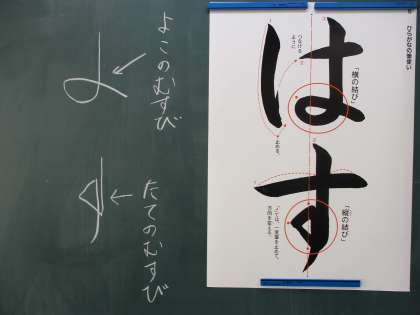 ひらがなの筆使い
は
つなげる
ように
「横の結び」
止める。
す
「縦の結び」
よこのむすび
たてのむすび